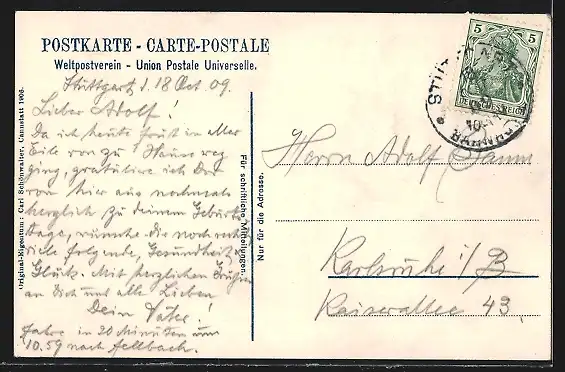 POSTKARTE - CARTE-POSTALE
Weltpostverein - Union Postale Universelle.
Stuttgart, 18 Oct 09.
Lieber Adolf!
Da ich heute früh in aller
Eile von zu Hause weg
ging, gratulire ich Dir
von hier aus nochmals
herzlich zu deinem Geburts
tage, wünsche dir noch recht
viele folgende, Gesundheit &
Glück. Mit herzlichen Grüßen
an Dich und alle Lieben
Dein Vater!
fahre in 20 Minuten um
10.59 nach Fellbach.
Original-Eigentum: Carl Schönwalter, Cannstatt 1906.
Für schriftliche Mitteilungen.
Nur für die Adresse.
5 5
DEUTSCHES REICH
STUTTGART
Herrn Adolf
Karlsruhe i/B
Kaiserallee 43.